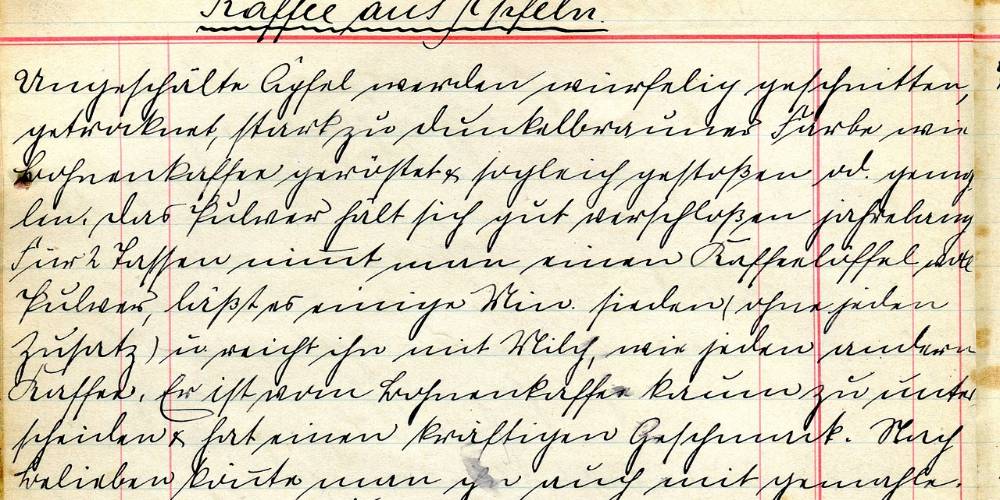 Kaffee aus Äpfeln.
Ungeschälte Äpfel werden würfelig geschnitten,
getrocknet, stark zu dunkelbrauner Farbe wie
Bohnenkaffee geröstet & sogleich gestoßen od. gemah
len. Das Pulver hält sich gut verschloßen jahrelang
Für 2 Tassen nimt man einen Kaffeelöffel voll
Pulver, läßt es einige Min. sieden (ohne jeden
Zusatz) u. reicht ihn mit Milch, wie jeden andern
Kaffee. Er ist vom Bohnenkaffee kaum zu unter
scheiden & hat einen kräftigen Geschmack. Nach
Belieben könte man ihn auch mit gemahle.